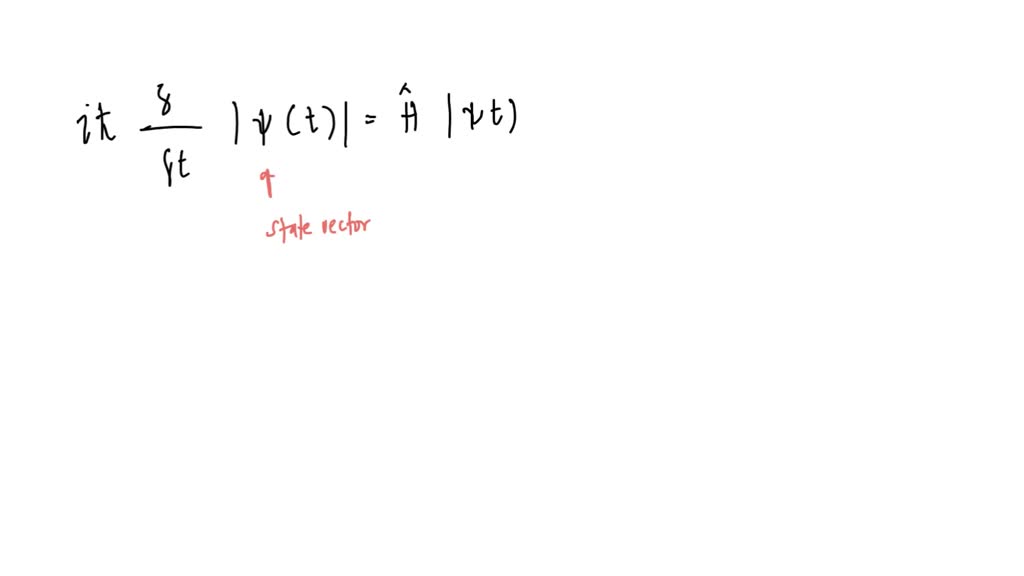 iħ δ/δt |ψ(t)| = Ĥ |ψt)
state vector